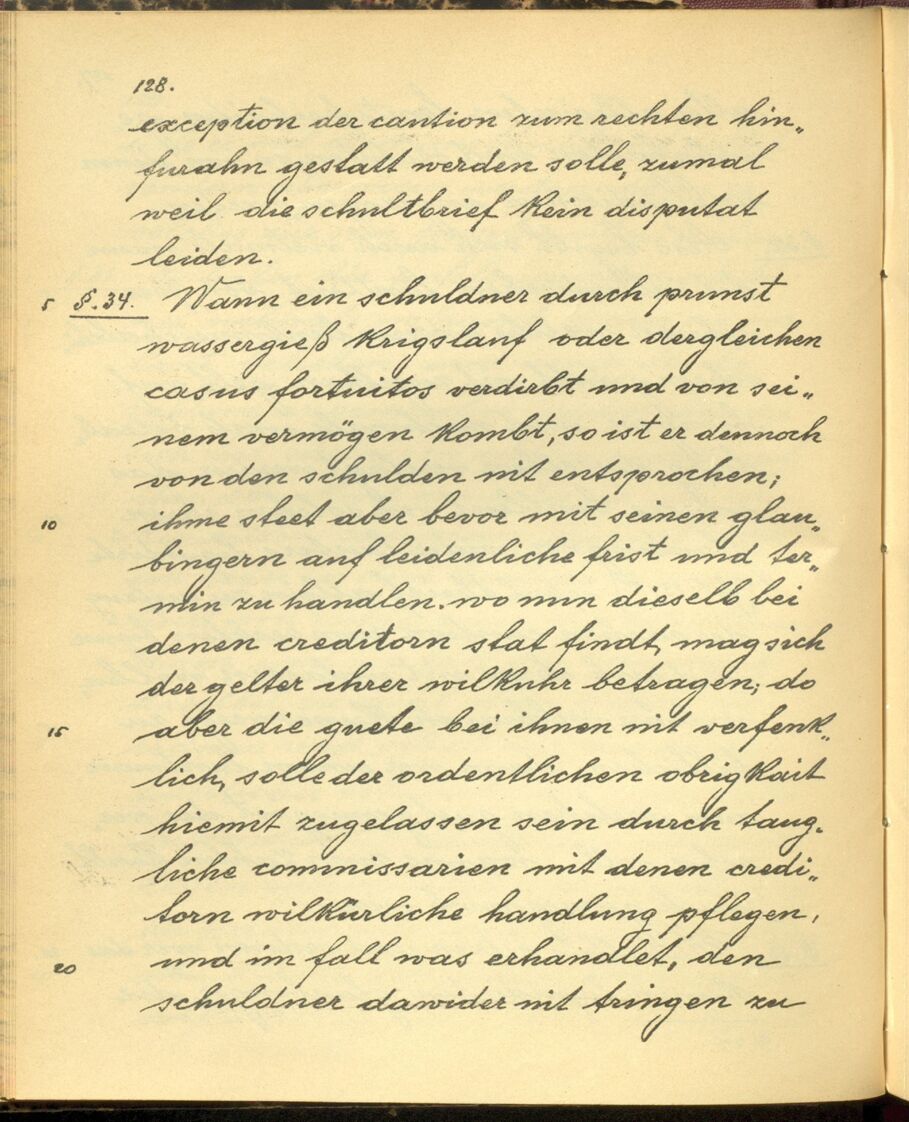 128.
exception der caution zum rechten hin„
furahn gestatt werden solle, zumal
weil die schultbrief kein disputat
leiden.
5 §. 34. Wann ein schuldner durch prunst
wassergieß krigslauf oder dergleichen
casus fortuitos verdirbt und von sei„
nem vermögen kombt, so ist er dennoch
von den schulden nit entsprochen;
10 ihme steet aber bevor mit seinen glau„
bingern auf leidenliche frist und ter„
min zu handlen. wo nun dieselb bei
denen creditorn stat findt, mag sich
der gelter ihrer wilkuhr betragen; do
15 aber die guete bei ihnen nit verfenk„
lich, solle der ordentlichen obrigkait
hiemit zugelassen sein durch taug„
liche commissarien mit denen credi„
torn wilkürliche handlung pflegen,
20 und im fall was erhandlet, den
schuldner dawider nit tringen zu